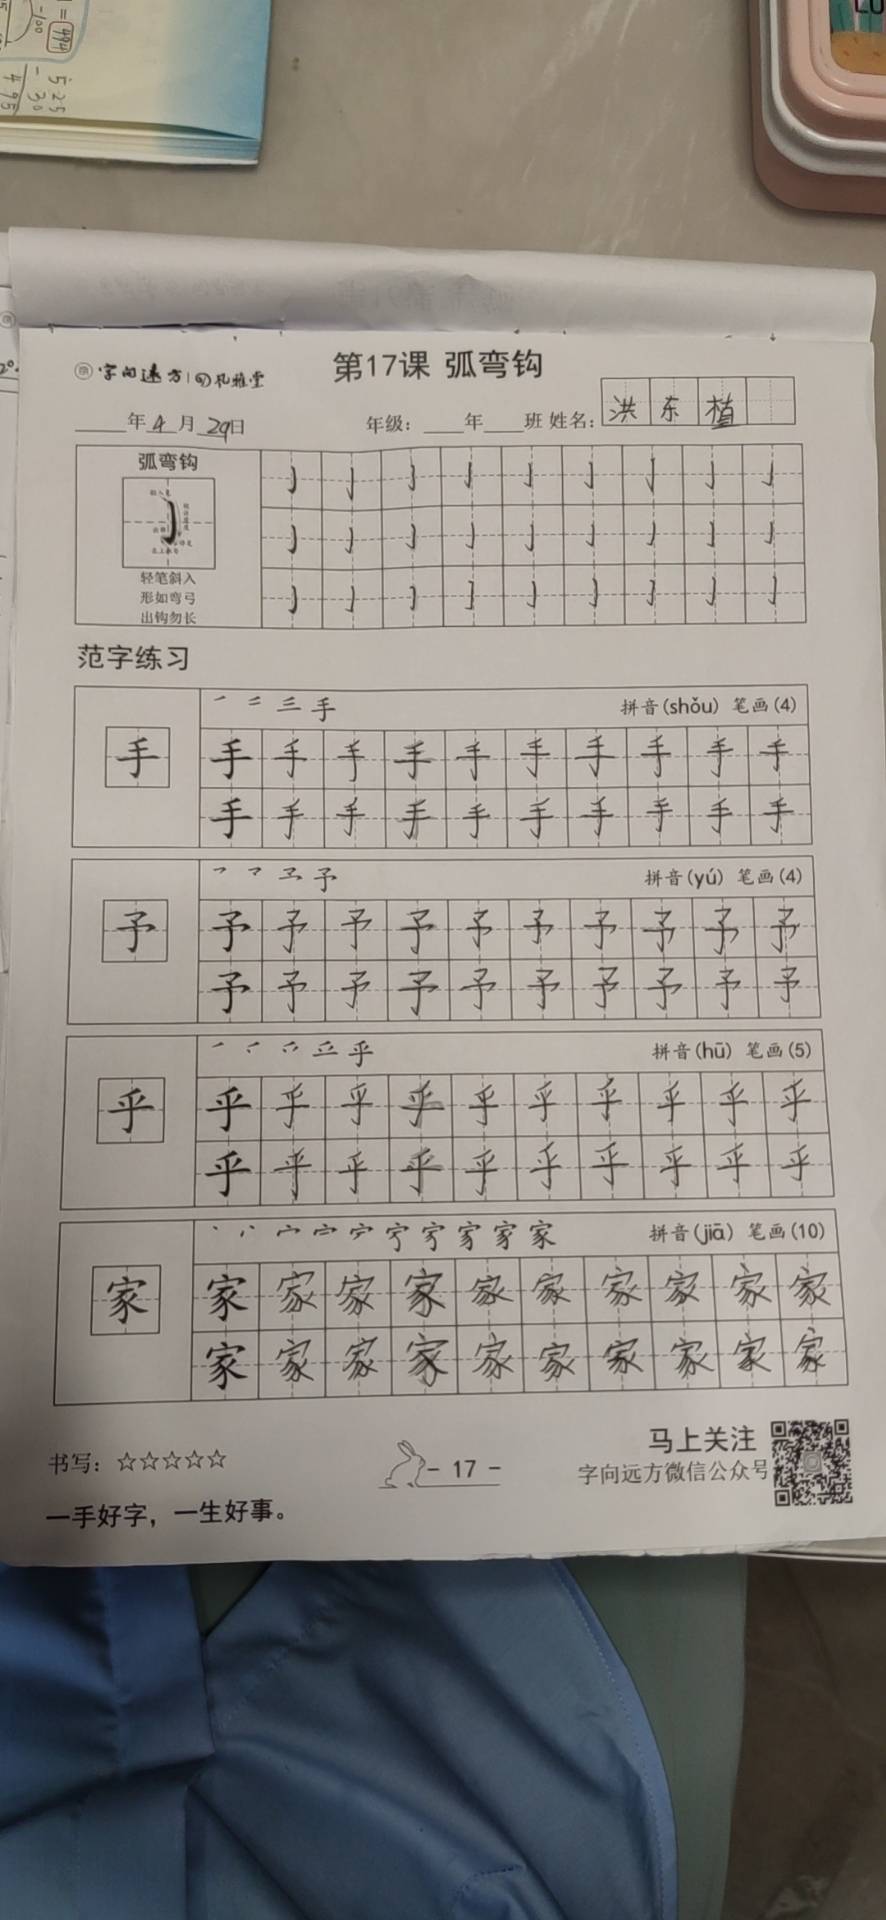 525
- 30
495
= 494
-100
字向远方 | 孔雅堂
第17课 弧弯钩
____年4月29日 年级：____年____班 姓名：洪东植
弧弯钩
轻笔斜入
形如弯弓
出钩勿长
范字练习
手 拼音(shǒu) 笔画(4)
手 手 手 手 手 手 手 手 手 手 手
手 手 手 手 手 手 手 手 手 手
予 拼音(yú) 笔画(4)
予 予 予 予 予 予 予 予 予 予 予
予 予 予 予 予 予 予 予 予 予
乎 拼音(hū) 笔画(5)
乎 乎 乎 乎 乎 乎 乎 乎 乎 乎 乎
乎 乎 乎 乎 乎 乎 乎 乎 乎 乎
家 拼音(jiā) 笔画(10)
家 家 家 家 家 家 家 家 家 家 家
家 家 家 家 家 家 家 家 家 家
书写：☆☆☆☆☆
- 17 -
马上关注
字向远方微信公众号
一手好字，一生好事。